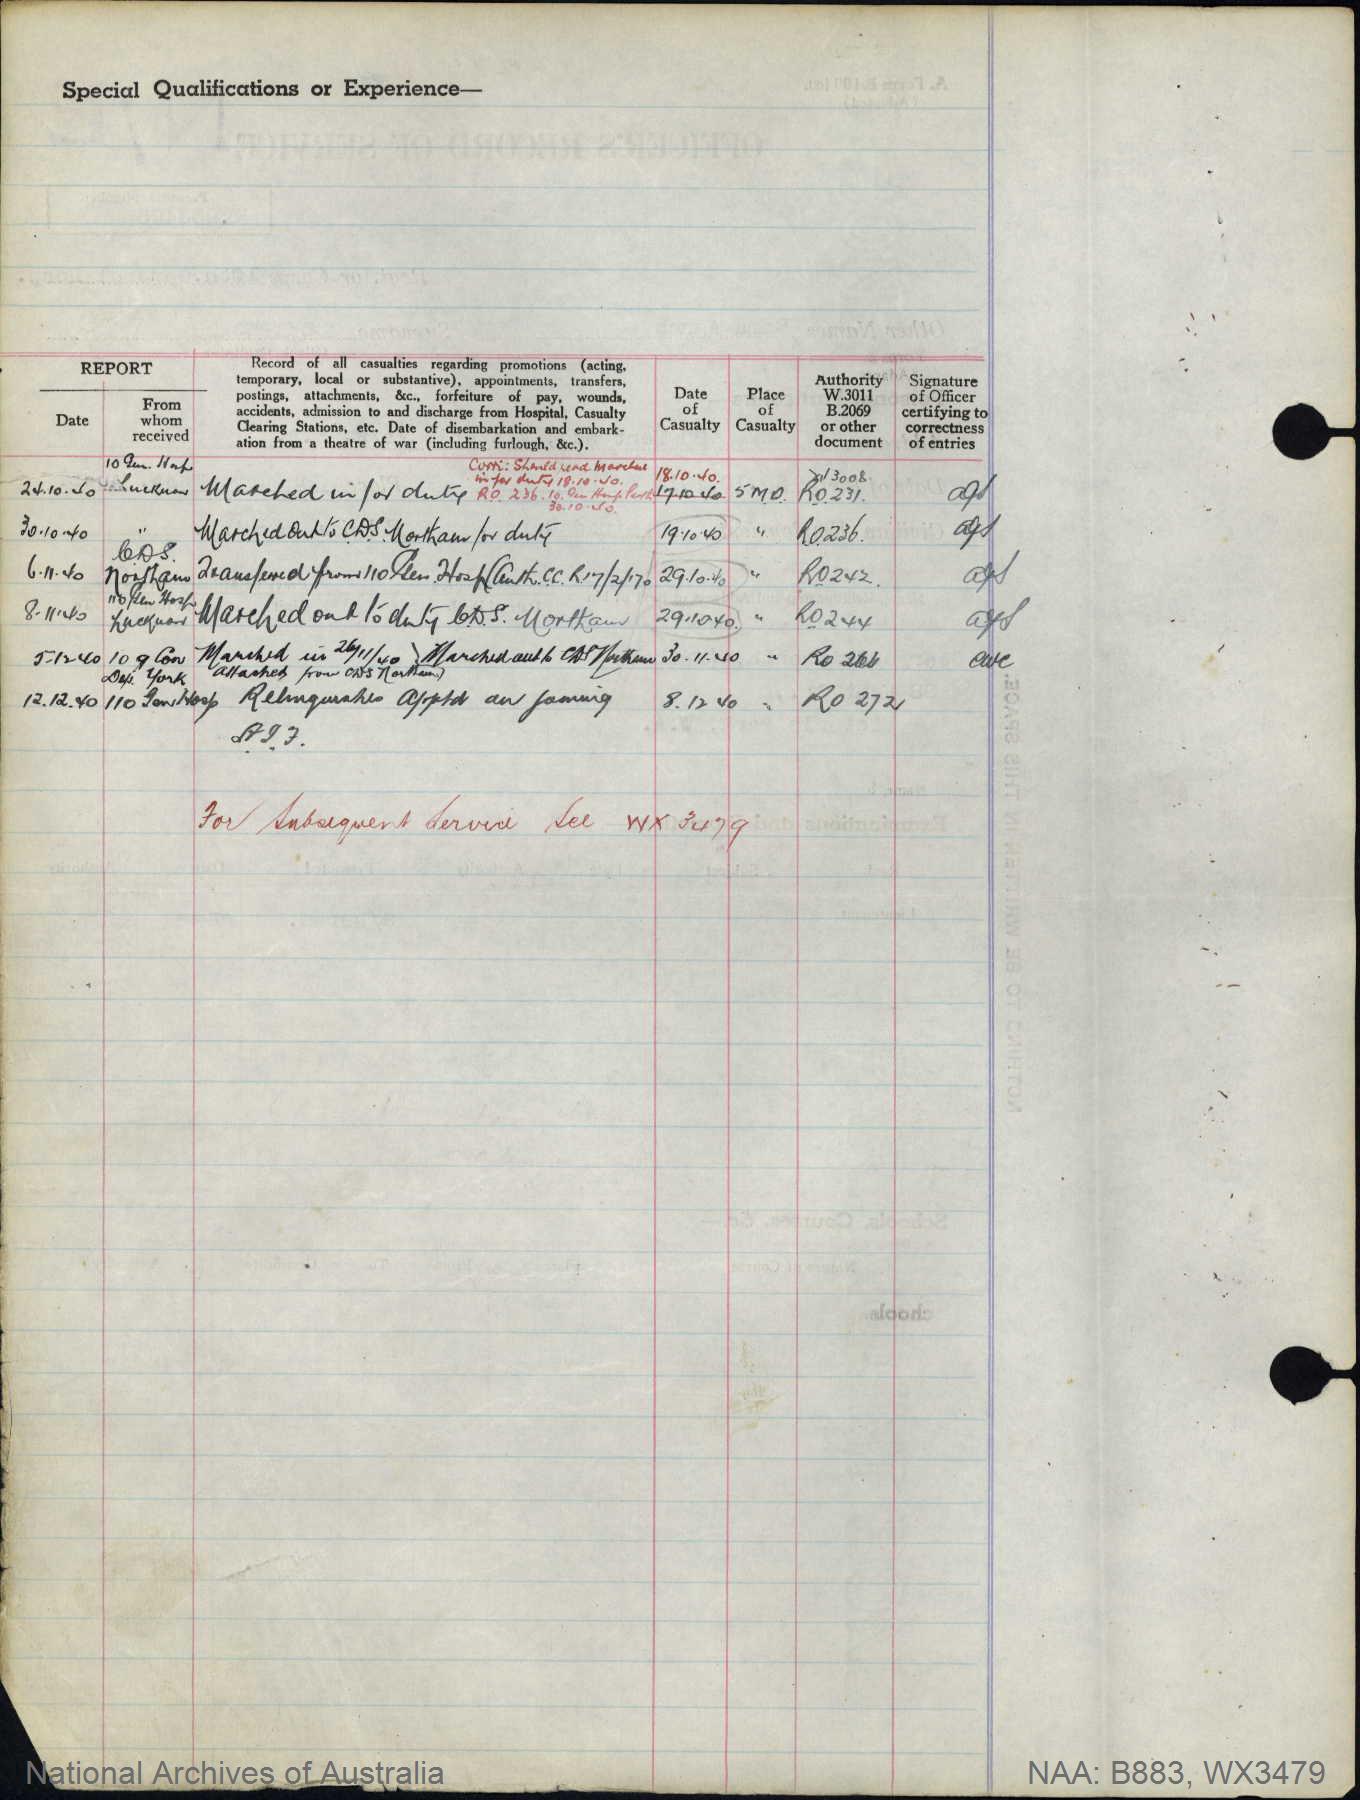 Special Qualifications or Experience—
REPORT
Date
From
whom
received
Record of all casualties regarding promotions (acting,
temporary, local or substantive), appointments, transfers,
postings, attachments, &c., forfeiture of pay, wounds,
accidents, admission to and discharge from Hospital, Casualty
Clearing Stations, etc. Date of disembarkation and embark-
ation from a theatre of war (including furlough, &c.).
Date
of
Casualty
Place
of
Casualty
Authority
W.3011
B.2069
or other
document
Signature
of Officer
certifying to
correctness
of entries
10 Gen. Hosp
Corri: Should read Marched
in for duty 18.10.40.
R.O. 236. 10. Gen Hosp Perth
30.10.40.
18.10.40.
3008
24.10.40 Lucknow Marched in for duty 17.10.40 5 M.D. RO 231.
30.10.40 " Marched out to C.D.S. Northam for duty 19.10.40 " RO 236.
C.D.S.
6.11.40 Northam Transferred from 110 Gen. Hosp (Auth. CC. R17/2/170 29.10.40 " RO 242.
110 Gen Hosp
8.11.40 Lucknow Marched out to duty C.D.S. Northam 29.10.40. " RO 244
5.12.40 10 G Con Marched in 26/11/40 Marched out to CDS Northam 30.11.40 " RO 266
Dep. York Attached from CDS Northam)
12.12.40 110 Gen Hosp Relinquishes Apptd on joining 8.12.40 " RO 272
A.I.F.
For Subsequent Service See WX 3479
NOTHING TO BE WRITTEN IN THIS SPACE.
National Archives of Australia
NAA: B883, WX3479